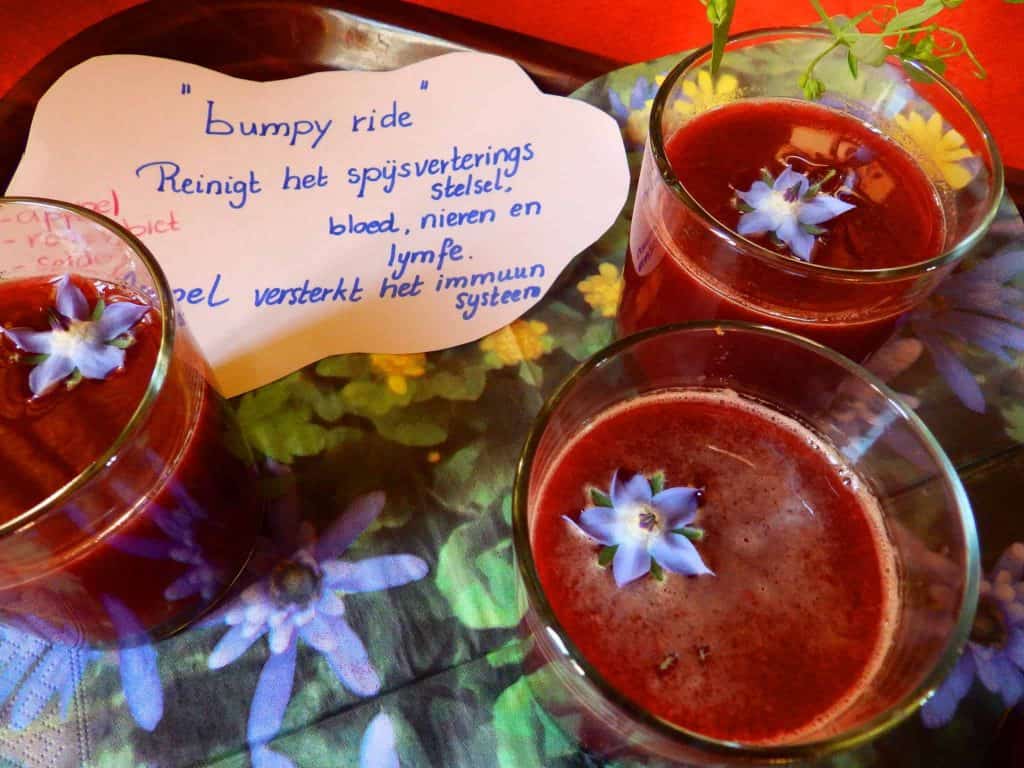 "bumpy ride"
Reinigt het spijsverterings
stelsel,
bloed, nieren en
lymfe.
versterkt het immuun
systeem
- appel